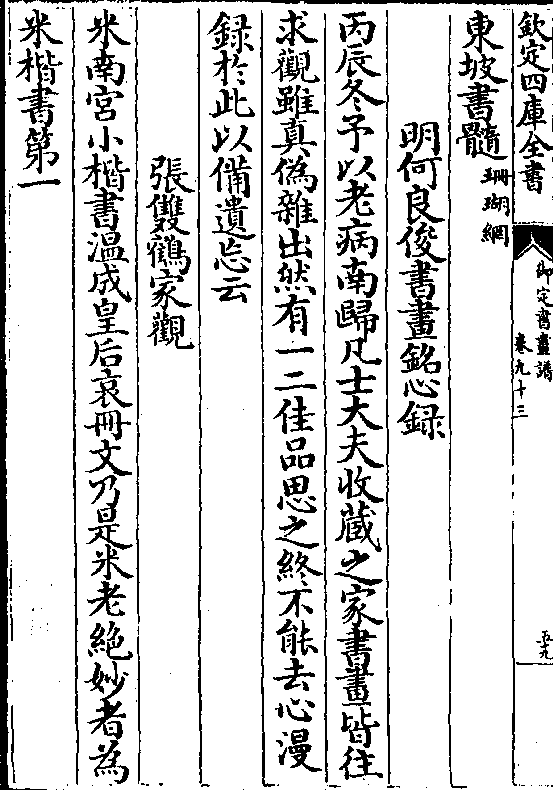 欽定四庫全書
御定書畫譜
卷九十三
五九
東坡書髓珊瑚網
明何良俊書畫銘心録
丙辰冬予以老病南歸凡士大夫收藏之家書畫皆往
求觀雖真偽雜出然有一二佳品思之終不能去心漫
録於此以備遺忘云
張雙鶴家觀
米南宮小楷書溫成皇后哀冊文乃是米老絶妙者為
米楷書第一